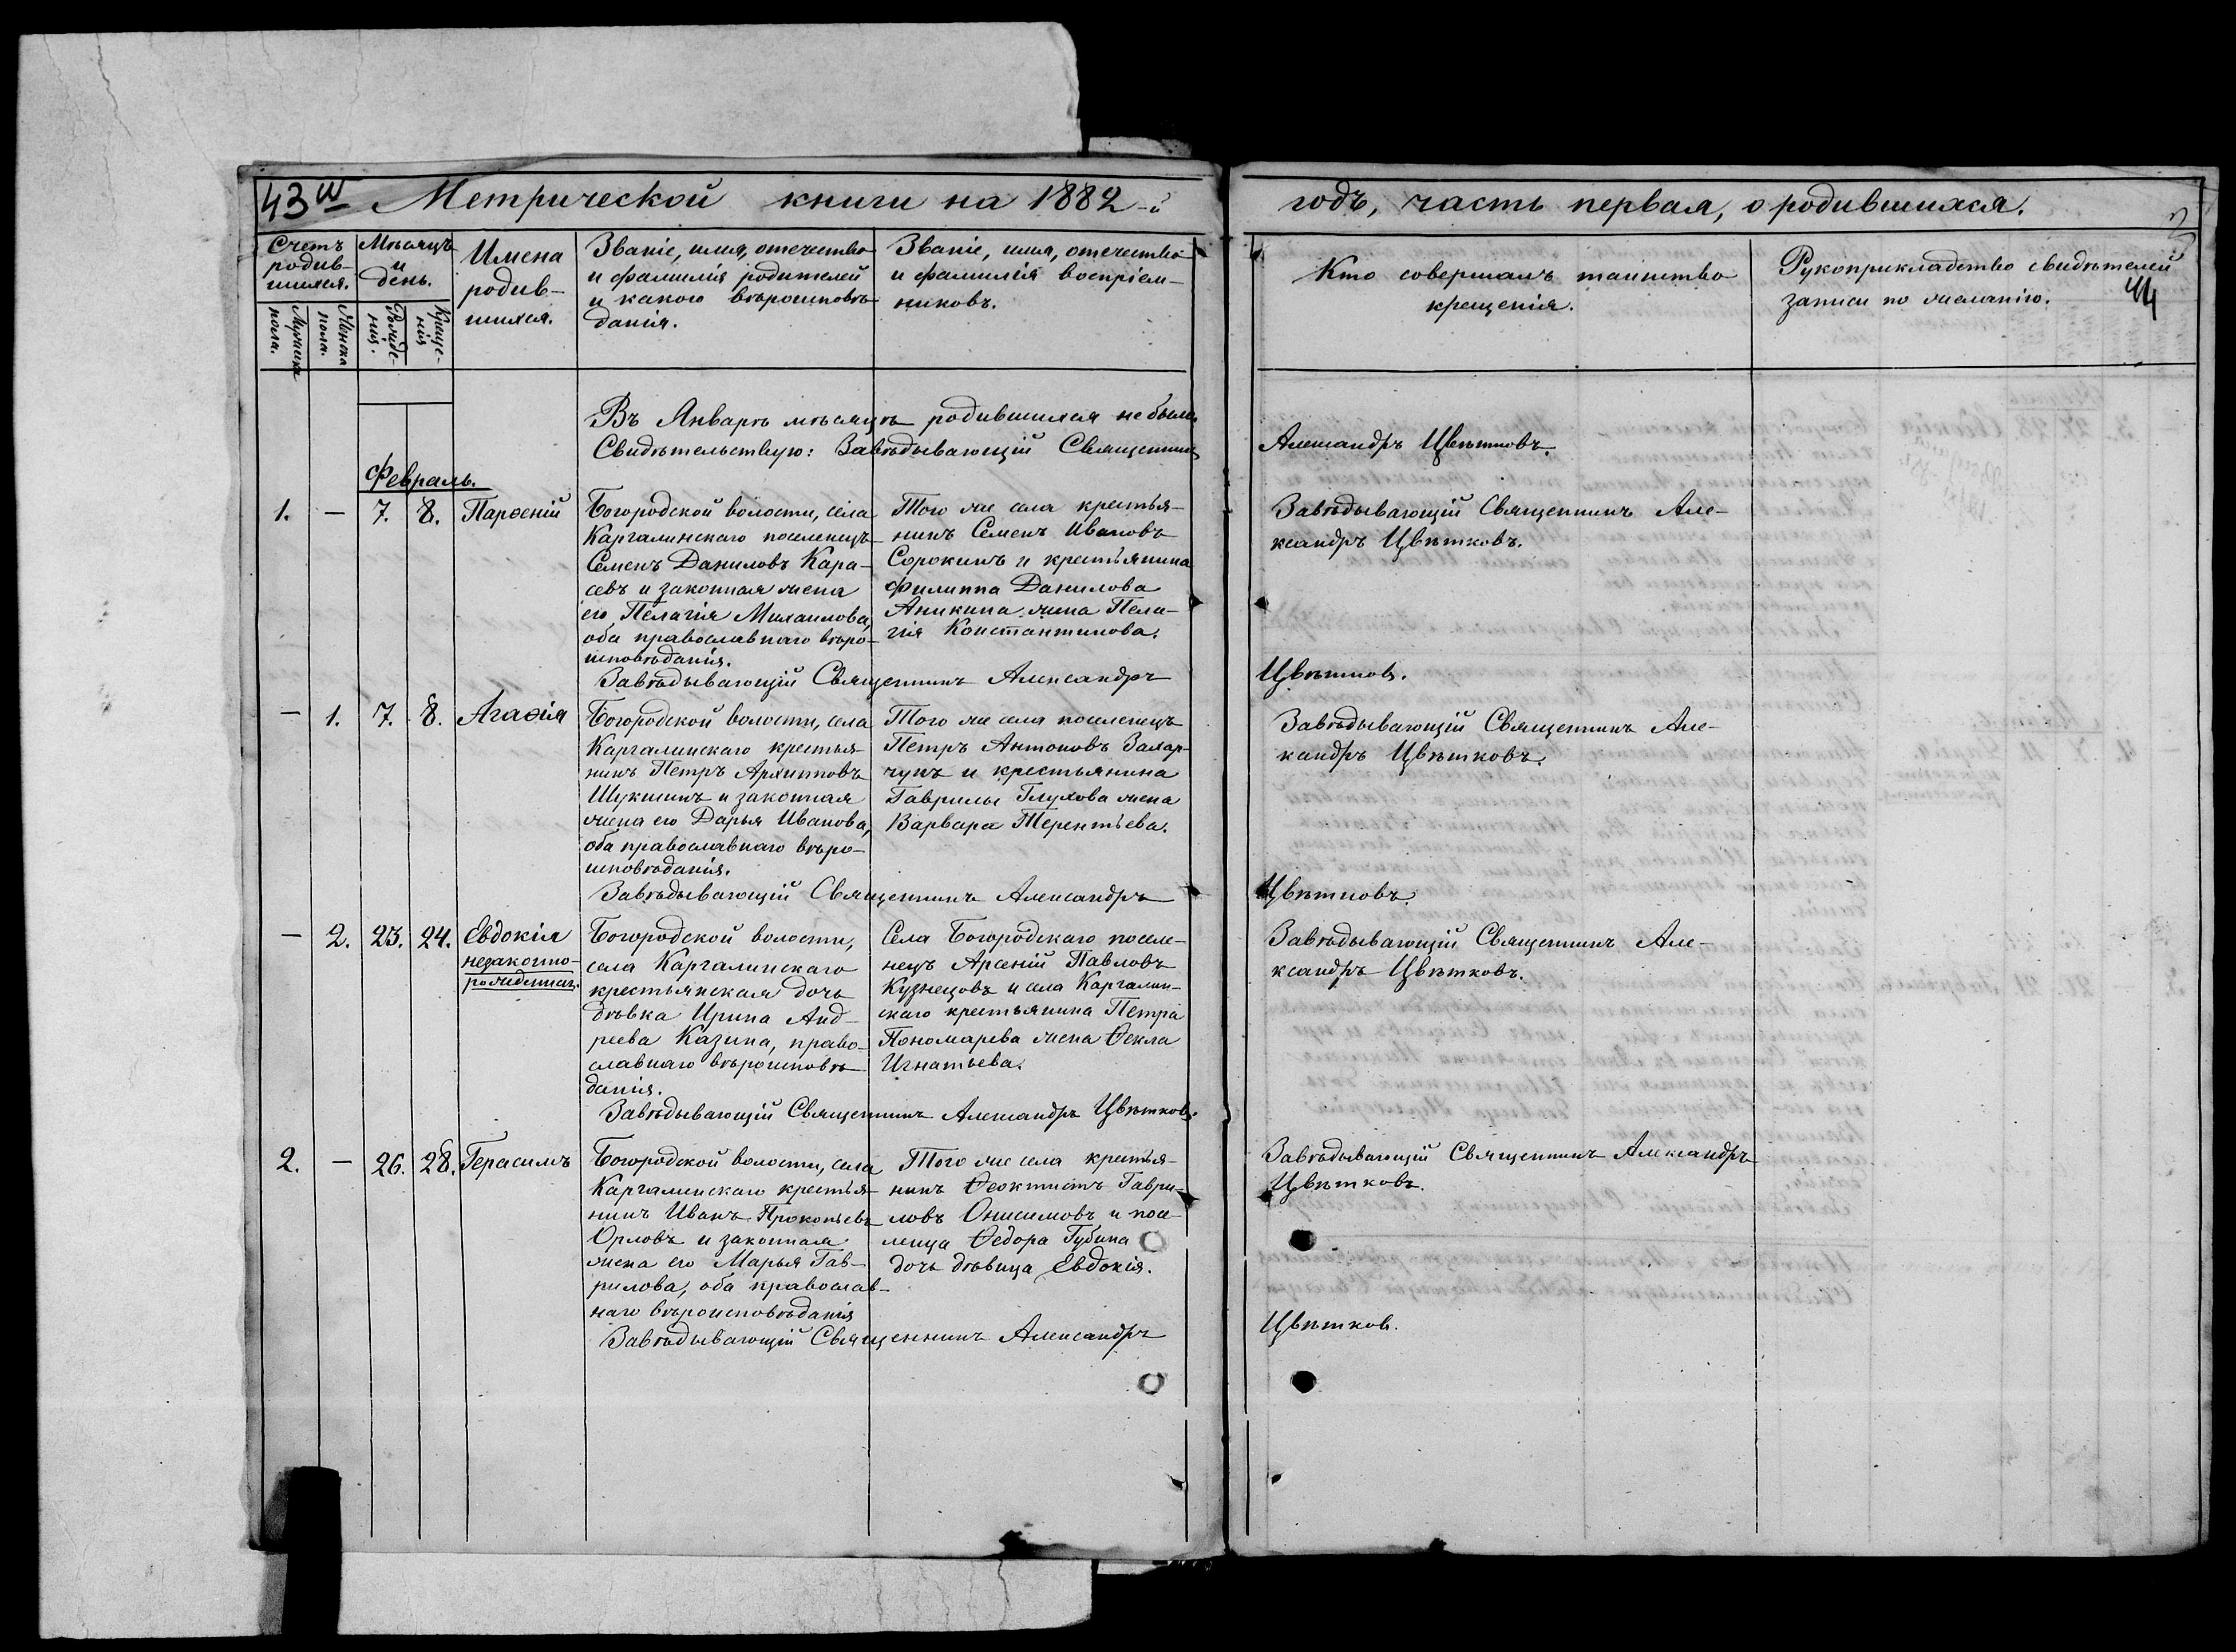 43 Метрической книги на 1882-й годъ, часть первая, о родившихся.
44
Счетъ родив-
шихся.
Мужеска пола.
Женска пола.
Мѣсяцъ
и
день.
Рожде-
нія.
Креще-
нія
Имена
родив-
шихся.
Званіе, имя, отечество
и фамилія родителей
и какого вѣроисповѣ-
данія.
Званіе, имя, отечество
и фамилія воспріем-
никовъ.
Кто совершалъ таинство
крещенія.
Рукоприкладство свидѣтелей
записи по желанію.
Въ Январѣ мѣсяцѣ родившихся не было.
Свидѣтельствую: Завѣдывающій Священникъ
Александръ Цвѣтковъ.
Февраль.
1. — 7. 8. Парѳеній
Богородской волости, села
Каргалинскаго поселенецъ
Семенъ Даниловъ Кара-
севъ и законная жена
его Пелагія Михаилова,
оба православнаго вѣро-
исповѣданія.
Того же села крестья-
нинъ Семенъ Ивановъ
Сорокинъ и крестьянина
Филиппа Данилова
Аникина жена Пела-
гія Константинова.
Завѣдывающій Священникъ Але-
ксандръ Цвѣтковъ.
Завѣдывающій Священникъ Александръ
Цвѣтковъ.
— 1. 7. 8. Агаѳія
Богородской волости, села
Каргалинскаго крестья-
нинъ Петръ Архиповъ
Шукшинъ и законная
жена его Дарья Иванова,
оба православнаго вѣро-
исповѣданія.
Того же села поселенецъ
Петръ Антоновъ Захар-
чукъ и крестьянина
Гаврилы Глухова жена
Варвара Терентьева.
Завѣдывающій Священникъ Але-
ксандръ Цвѣтковъ.
Завѣдывающій Священникъ Александръ
Цвѣтковъ
— 2. 23. 24. Евдокія
незаконно-
рожденная.
Богородской волости,
села Каргалинскаго
крестьянская дочь
дѣвка Ирина Анд-
реева Казина, право-
славнаго вѣроисповѣ-
данія.
Села Богородскаго поселе-
нецъ Арсеній Павловъ
Кузнецовъ и села Каргалин-
скаго крестьянина Петра
Пономарева жена Ѳекла
Игнатьева.
Завѣдывающій Священникъ Але-
ксандръ Цвѣтковъ.
Завѣдывающій Священникъ Александръ Цвѣтковъ.
2. — 26. 28. Герасимъ
Богородской волости, села
Каргалинскаго крестья-
нинъ Иванъ Прокопьевъ
Орловъ и законная
жена его Марья Гав-
рилова, оба православ-
наго вѣроисповѣданія
Того же села крестья-
нинъ Ѳеоктистъ Гаври-
ловъ Онисимовъ и посе-
ленца Ѳедора Губина
дочь дѣвица Евдокія.
Завѣдывающій Священникъ Александръ
Цвѣтковъ.
Завѣдывающій Священникъ Александръ
Цвѣтков.